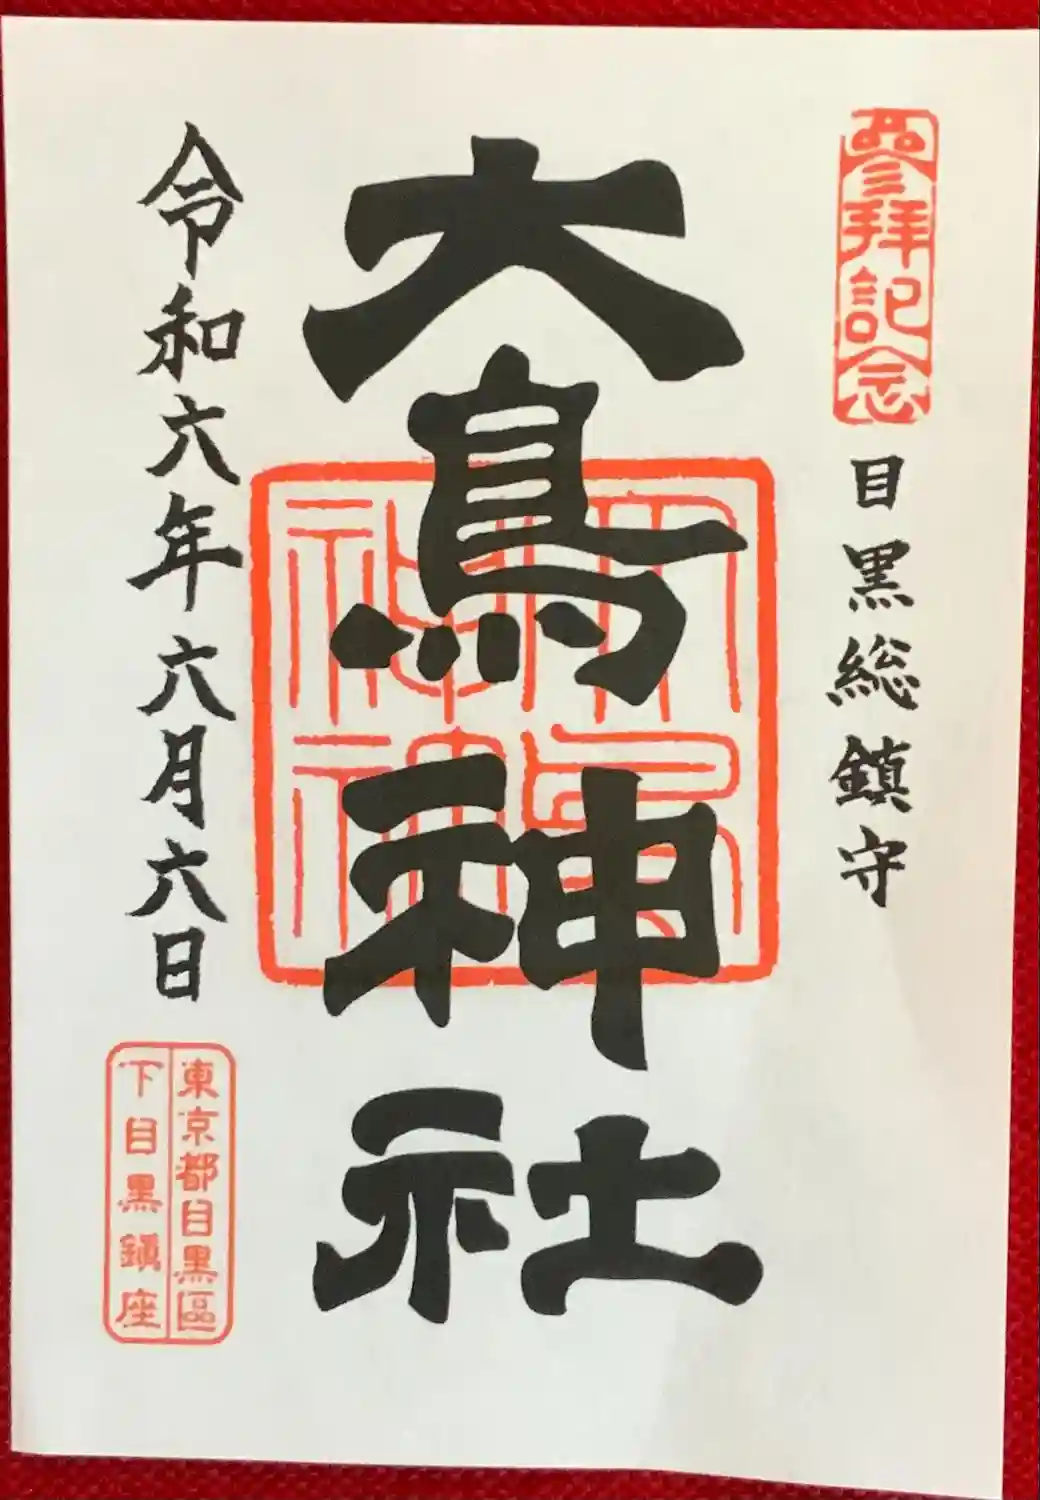 參拜記念
目黒総鎮守
大鳥神社
令和六年六月六日
東京都目黒區
下目黒鎮座